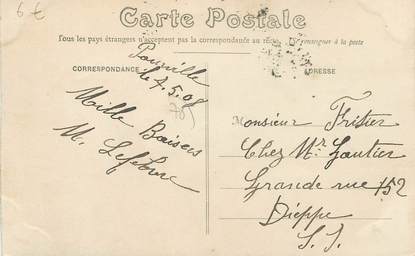 6 €
Carte Postale
Tous les pays étrangers n'acceptent pas la correspondance au recto. Se renseigner à la poste
CORRESPONDANCE
ADRESSE
Pourville
le 7.5.08
Mille Baisers
M. Lefebvre
Monsieur Fritier
Chez Mr Gautier
Grande rue 152
Dieppe
S. I.